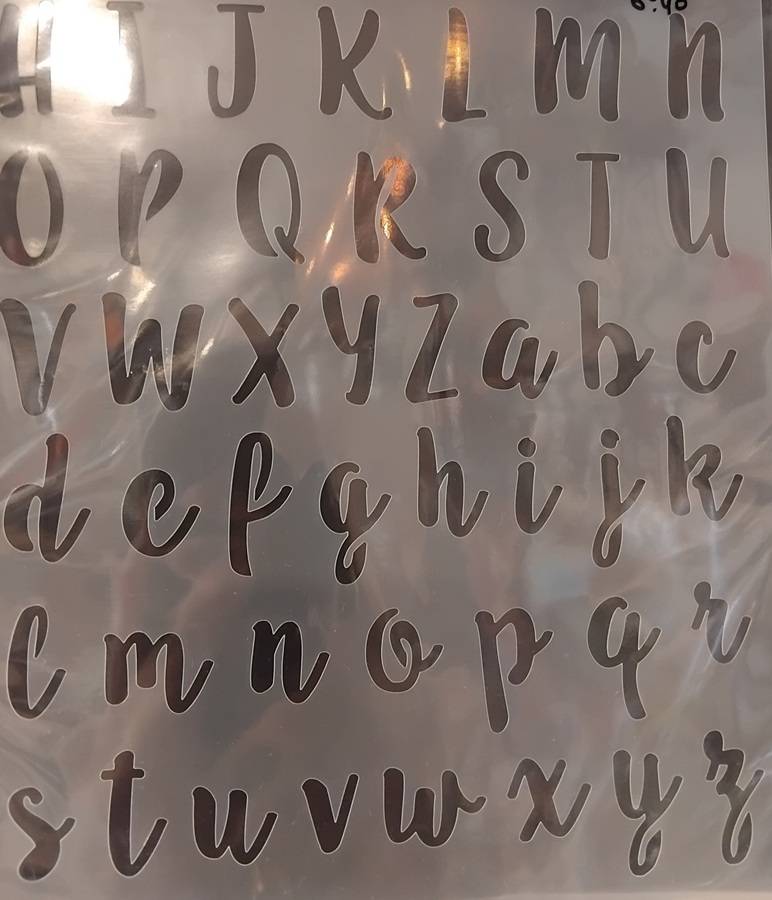 H I J K L M n
O P Q R S T U
V W X Y Z a b c
d e f g h i j k
l m n o p q r
s t u v w x y z